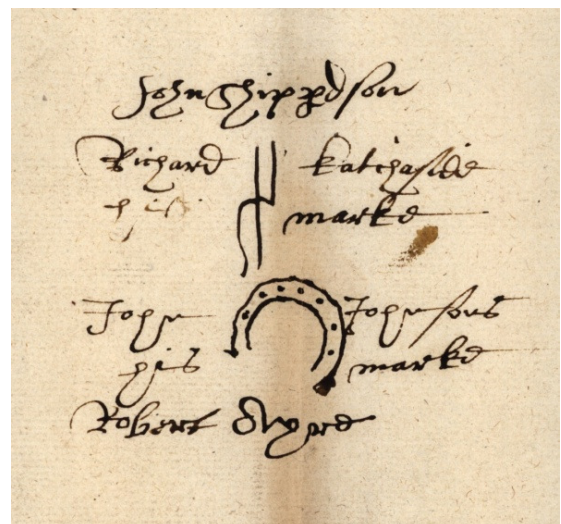 John Shipperdson
Richard Katchaside
his marke
John Johnsons
his marke
Robert Ayre